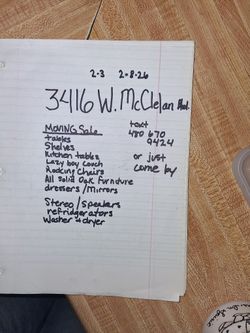 2-3 2-8-26
3416 W. McClelan Blvd.
MOVING Sale
text
480 670
9424
or just
come by
tables
Shelves
Kitchen tables
Lazy boy Couch
Rocking Chairs
All Solid Oak furniture
dressers/Mirrors
Stereo/speakers
refridgerators
Washer & dryer